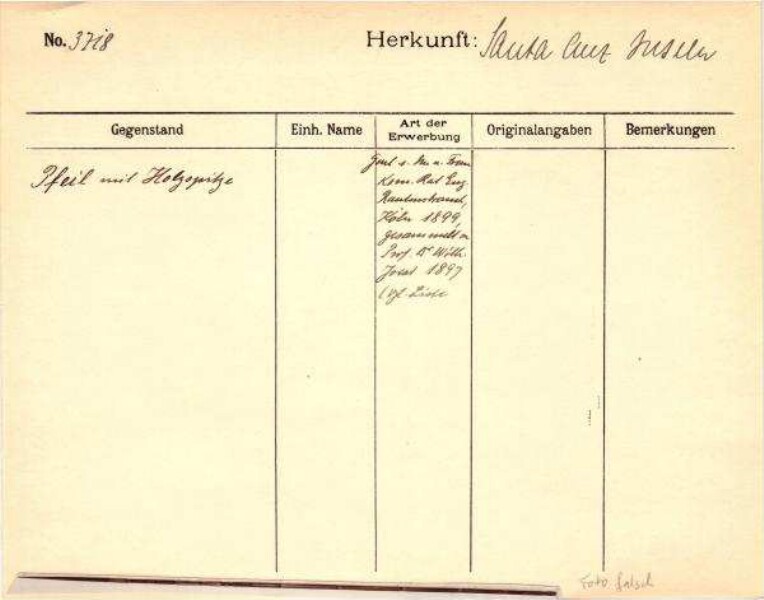 No. 3718
Herkunft: Santa Cruz Inseln
Gegenstand
Einh. Name
Art der Erwerbung
Originalangaben
Bemerkungen
Pfeil mit Holzspitze
v. u. Frau
Kom. Rat Eug
Rautenstrauch,
Köln 1899,
gesammelt v.
Prof. Dr
Joest 1897
(vgl. Liste
Foto falsch